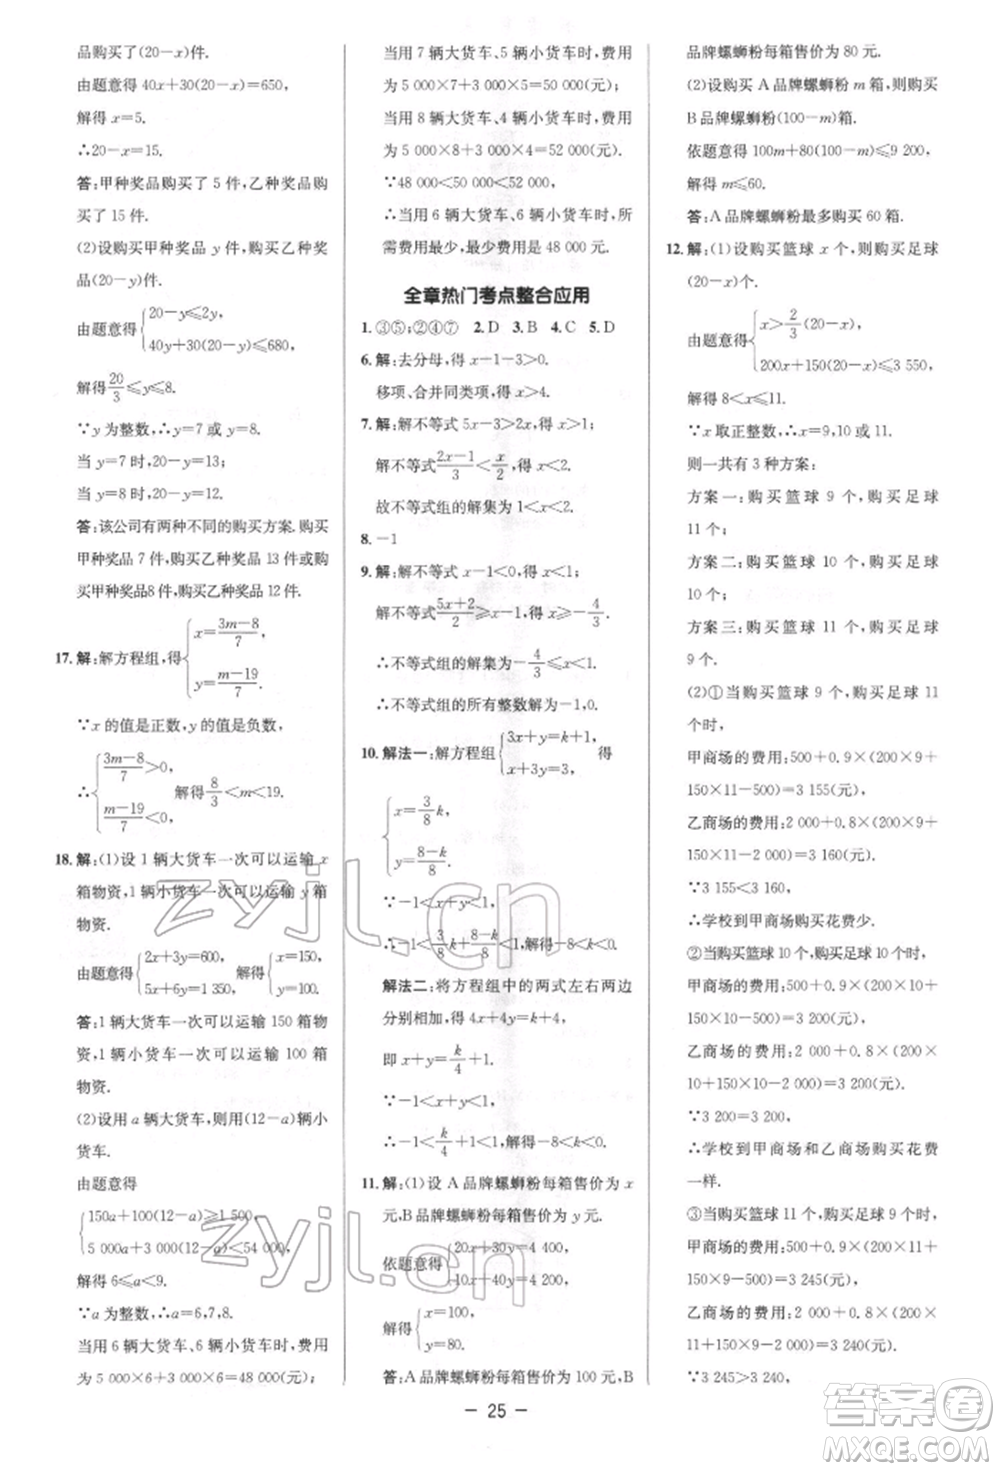 品购买了(20-x)件.
由题意得 40x+30(20-x)=650,
解得 x=5.
∴20-x=15.
答:甲种奖品购买了 5 件,乙种奖品购买了 15 件.
(2)设购买甲种奖品 y 件,购买乙种奖品(20-y)件.
由题意得{20-y≤2y,
40y+30(20-y)≤680,
解得20/3≤y≤8.
∵y 为整数,∴y=7 或 y=8.
当 y=7 时,20-y=13;
当 y=8 时,20-y=12.
答:该公司有两种不同的购买方案.购买甲种奖品 7 件,购买乙种奖品 13 件或购买甲种奖品8 件,购买乙种奖品 12 件.
17.解:解方程组,得{x=(3m-8)/7,
y=(m-19)/7.
∵x 的值是正数,y 的值是负数,
∴{(3m-8)/7>0,
(m-19)/7<0,
解得8/3<m<19.
18.解:(1)设 1 辆大货车一次可以运输 x 箱物资,1 辆小货车一次可以运输 y 箱物资.
由题意得{2x+3y=600,
5x+6y=1 350,
解得{x=150,
y=100.
答:1 辆大货车一次可以运输 150 箱物资,1 辆小货车一次可以运输 100 箱物资.
(2)设用 a 辆大货车,则用(12-a)辆小货车.
由题意得
{150a+100(12-a)≥1 500,
5 000a+3 000(12-a)<54 000,
解得 6≤a<9.
∵a 为整数,∴a=6,7,8.
当用 6 辆大货车、6 辆小货车时,费用为 5 000×6+3 000×6=48 000(元);
当用 7 辆大货车、5 辆小货车时,费用为 5 000×7+3 000×5=50 000(元);
当用 8 辆大货车、4 辆小货车时,费用为 5 000×8+3 000×4=52 000(元).
∵48 000<50 000<52 000,
∴当用 6 辆大货车、6 辆小货车时,所需费用最少,最少费用是 48 000 元.
全章热门考点整合应用
1.③⑤;②④⑦ 2.D 3.B 4.C 5.D
6.解:去分母,得 x-1-3>0.
移项、合并同类项,得 x>4.
7.解:解不等式 5x-3>2x,得 x>1;
解不等式(2x-1)/3<x/2,得 x<2.
故不等式组的解集为 1<x<2.
8.-1
9.解:解不等式 x-1<0,得 x<1;
解不等式(5x+2)/2≥x-1,得 x≥-4/3.
∴不等式组的解集为-4/3≤x<1.
∴不等式组的所有整数解为-1,0.
10.解法一:解方程组{3x+y=k+1,
x+3y=3,
得
{x=3/8k,
y=(8-k)/8.
∵-1<x+y<1,
∴-1<3/8k+(8-k)/8<1,解得-8<k<0.
解法二:将方程组中的两式左右两边分别相加,得 4x+4y=k+4,
即 x+y=k/4+1.
∵-1<x+y<1,
∴-1<k/4+1<1,解得-8<k<0.
11.解:(1)设 A 品牌螺蛳粉每箱售价为 x 元,B 品牌螺蛳粉每箱售价为 y 元.
依题意得{20x+30y=4 400,
10x+40y=4 200,
解得{x=100,
y=80.
答:A 品牌螺蛳粉每箱售价为 100 元,B 品牌螺蛳粉每箱售价为 80 元.
(2)设购买 A 品牌螺蛳粉 m 箱,则购买 B 品牌螺蛳粉(100-m)箱.
依题意得 100m+80(100-m)≤9 200,
解得 m≤60.
答:A 品牌螺蛳粉最多购买 60 箱.
12.解:(1)设购买篮球 x 个,则购买足球(20-x)个.
由题意得{x>2/3(20-x),
200x+150(20-x)≤3 550,
解得 8<x≤11.
∵x 取正整数,∴x=9,10 或 11.
则一共有 3 种方案:
方案一:购买篮球 9 个,购买足球 11个;
方案二:购买篮球 10 个,购买足球 10个;
方案三:购买篮球 11 个,购买足球 9个.
(2)①当购买篮球 9 个,购买足球 11 个时,
甲商场的费用:500+0.9×(200×9+150×11-500)=3 155(元),
乙商场的费用:2 000+0.8×(200×9+150×11-2 000)=3 160(元).
∵3 155<3 160,
∴学校到甲商场购买花费少.
②当购买篮球 10 个,购买足球 10 个时,
甲商场的费用:500+0.9×(200×10+150×10-500)=3 200(元),
乙商场的费用:2 000+0.8×(200×10+150×10-2 000)=3 200(元).
∵3 200=3 200,
∴学校到甲商场和乙商场购买花费一样.
③当购买篮球 11 个,购买足球 9 个时,
甲商场的费用:500+0.9×(200×11+150×9-500)=3 245(元),
乙商场的费用:2 000+0.8×(200×11+150×9-2 000)=3 240(元).
∵3 245>3 240,
- 25 -
zyjl.cn
zyjl.cn
答案圈
MXQE.COM